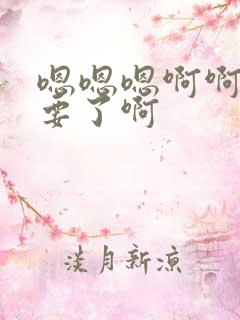 嗯嗯嗯啊啊
要了啊
淡月新凉